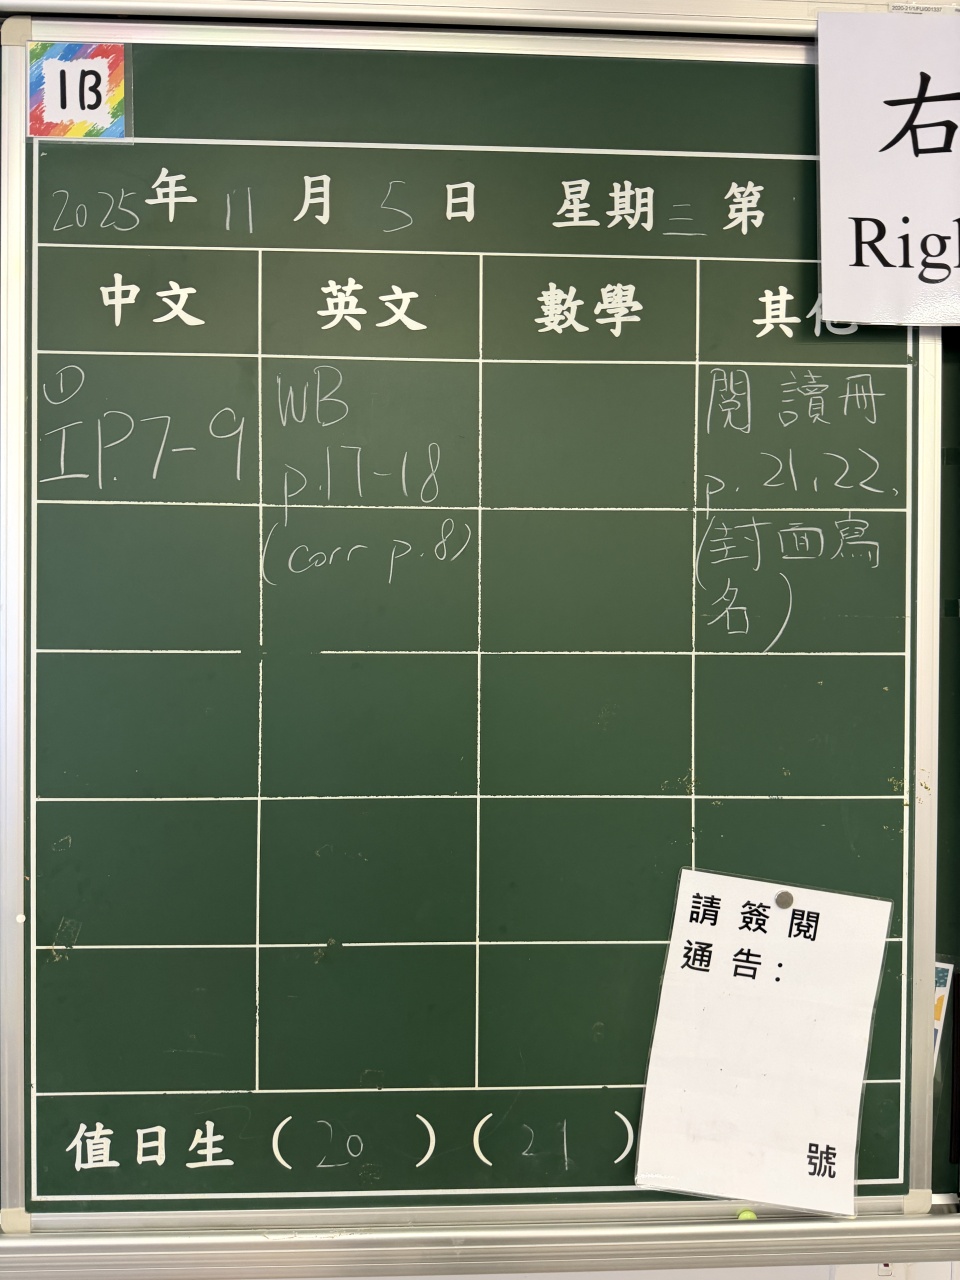 2020-21/1/FU/001337
1B
右
Righ
2025年 11月 5日 星期三 第
中文 英文 數學 其他
①
工P.7-9
WB
p.17-18
(corr p.8)
閱讀冊
p.21,22,
(封面寫
名)
請簽閱
通告:
號
值日生 (20) (21)